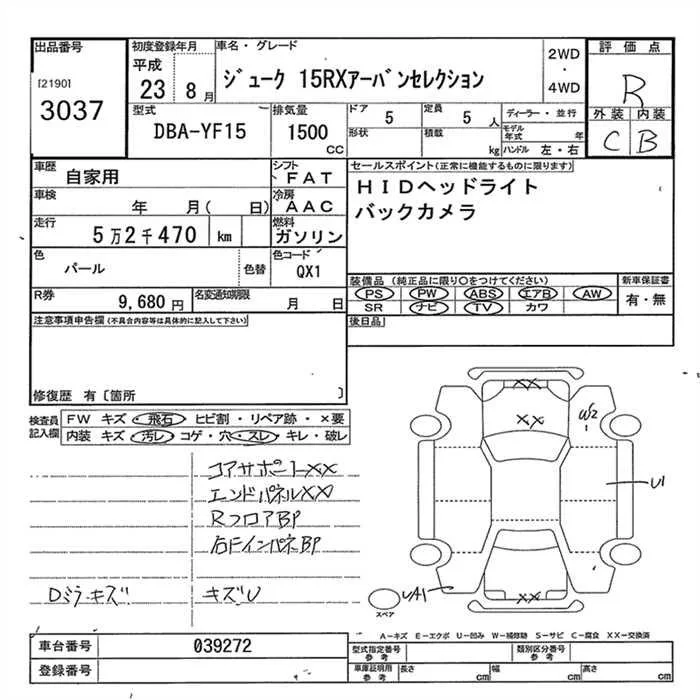 出品番号
[2190]
3037
初度登録年月
平成
23 8月
車名・グレード
ジューク 15RXアーバンセレクション
2WD
・
4WD
評価点
R
外装 内装
C B
型式
DBA-YF15
排気量
1500
CC
ドア
5
定員
5 人
ディーラー・並行
形状
積載
kg
モデル年式 年
ハンドル 左・右
車歴
自家用
シフト
FAT
セールスポイント(正常に機能するものに限ります)
HIDヘッドライト
バックカメラ
車検
年 月( 日)
冷房
AAC
走行
5万2千470 km
燃料
ガソリン
色
パール
色替
色コード
QX1
R券
9,680円
名変通知期限
月 日
装備品(純正品に限り○をつけてください)
PS PW ABS エアB AW
SR ナビ TV カワ
新車保証書
有・無
後日品
注意事項申告欄(不具合内容等は具体的に記入して下さい)
修復歴 有〔箇所 〕
検査員記入欄
FW キズ・飛石・ヒビ割・リペア跡・×要
内装 キズ・汚レ・コゲ・穴・スレ・キレ・破レ
コアサポートXX
エンドパネルXX
RフロアBP
右FインパネBP
Dミラーキズ
キズU
XX
XX
W2
U1
UA1
XX
スペア
A―キズ E―エクボ U―凹み W―補修跡 S―サビ C―腐食 XX―交換済
車台番号
039272
登録番号
型式指定番号
参考
類別区分番号
参考
車庫証明用
参考
長さ cm
幅 cm
高さ cm